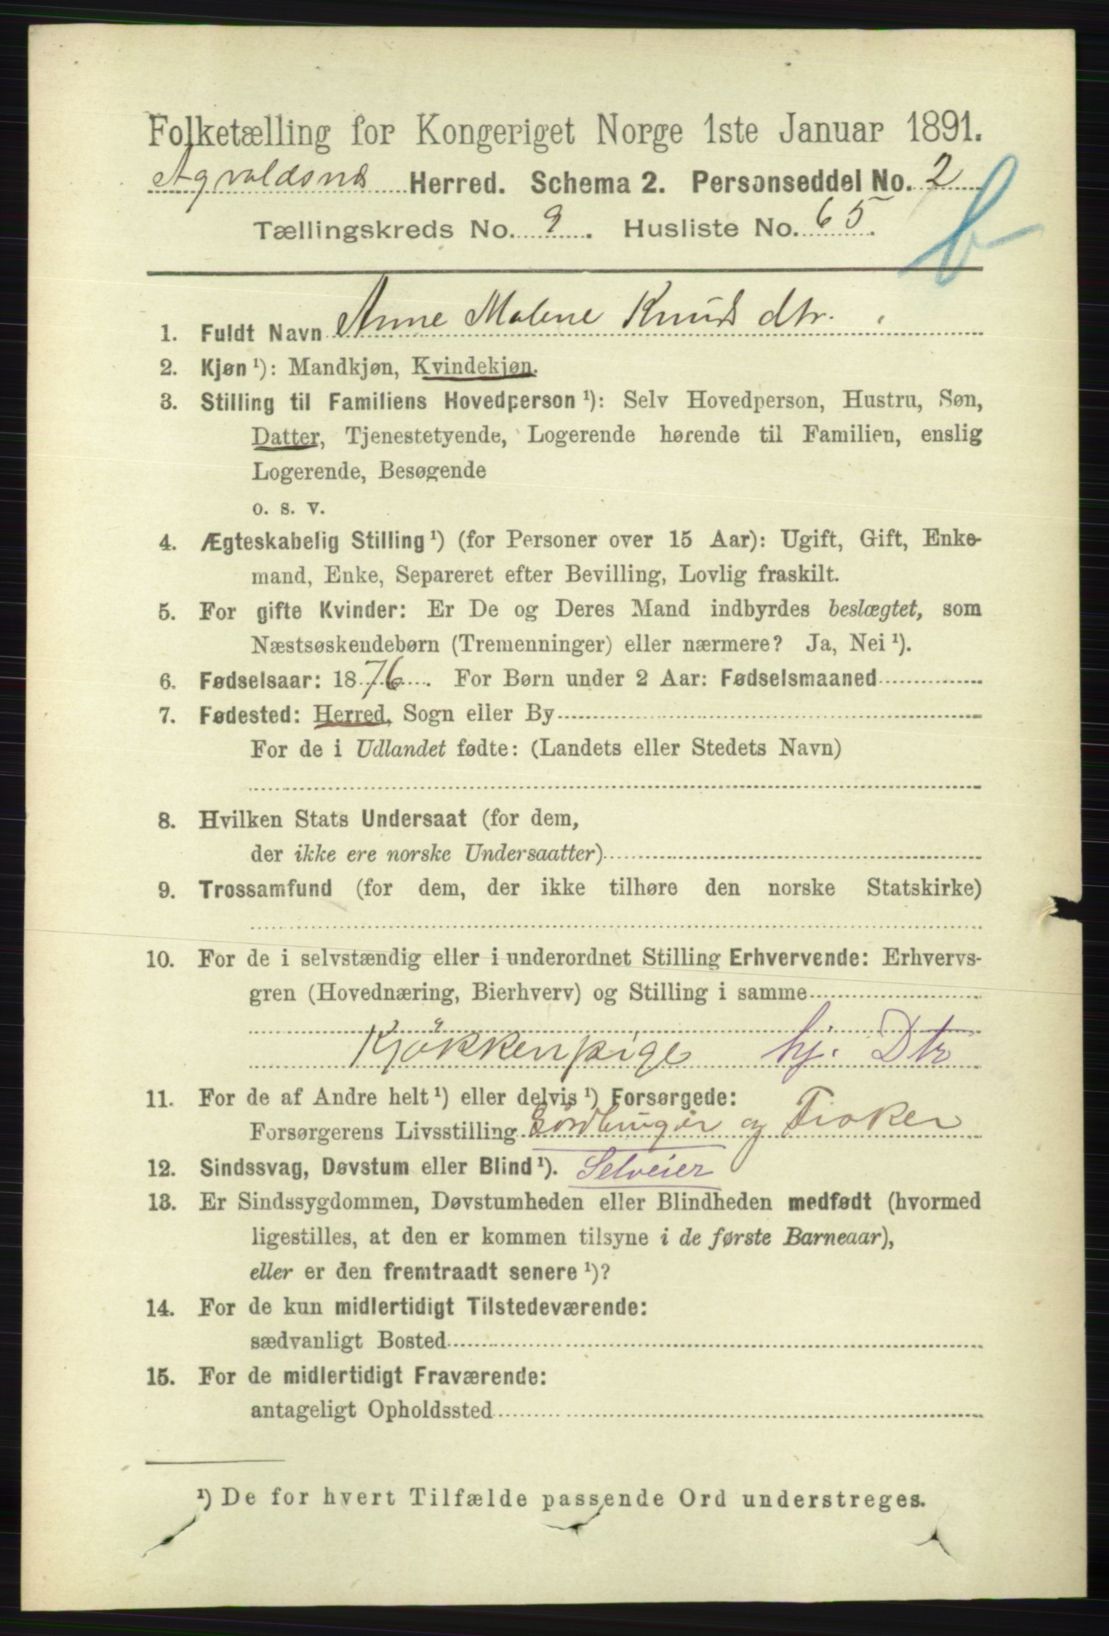 Folketælling for Kongeriget Norge 1ste Januar 1891.
Agvaldsnes Herred. Schema 2. Personseddel No. 2
b
Tællingskreds No. 9. Husliste No. 65.
1. Fuldt Navn Anne Malene Knuds dtr.
2. Kjøn ¹): Mandkjøn, Kvindekjøn.
3. Stilling til Familiens Hovedperson ¹): Selv Hovedperson, Hustru, Søn,
Datter, Tjenestetyende, Logerende hørende til Familien, enslig
Logerende, Besøgende
o. s. v.
4. Ægteskabelig Stilling ¹) (for Personer over 15 Aar): Ugift, Gift, Enke-
mand, Enke, Separeret efter Bevilling, Lovlig fraskilt.
5. For gifte Kvinder: Er De og Deres Mand indbyrdes beslægtet, som
Næstsøskendebørn (Tremenninger) eller nærmere? Ja, Nei ¹).
6. Fødselsaar: 1876. For Børn under 2 Aar: Fødselsmaaned
7. Fødested: Herred, Sogn eller By
For de i Udlandet fødte: (Landets eller Stedets Navn)
8. Hvilken Stats Undersaat (for dem,
der ikke ere norske Undersaatter)
9. Trossamfund (for dem, der ikke tilhøre den norske Statskirke)
10. For de i selvstændig eller i underordnet Stilling Erhvervende: Erhvervs-
gren (Hovednæring, Bierhverv) og Stilling i samme
Kjøkkenpige hj. Dtr
11. For de af Andre helt ¹) eller delvis ¹) Forsørgede:
Forsørgerens Livsstilling og Fisker
12. Sindssvag, Døvstum eller Blind ¹). Selveier
13. Er Sindssygdommen, Døvstumheden eller Blindheden medfødt (hvormed
ligestilles, at den er kommen tilsyne i de første Barneaar),
eller er den fremtraadt senere ¹)?
14. For de kun midlertidigt Tilstedeværende:
sædvanligt Bosted
15. For de midlertidigt Fraværende:
antageligt Opholdssted
¹) De for hvert Tilfælde passende Ord understreges.